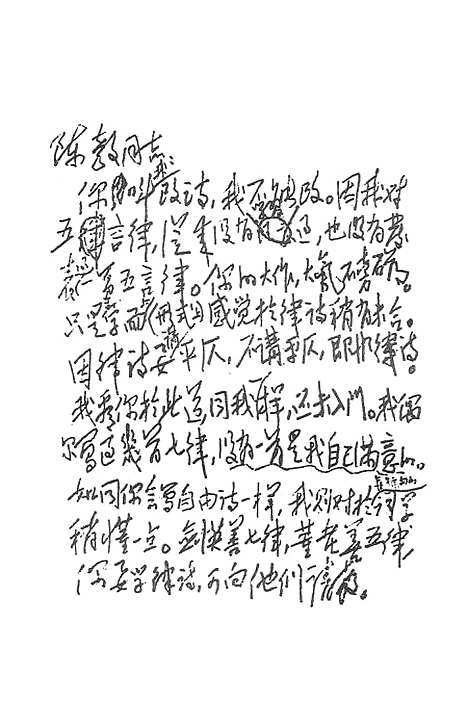 陈毅同志：
你叫我改诗，我不能改。因我对
五言律，从来没有学习过，也没有发
表过一首五言律。你的大作，大气磅礴。
只是在字面上（形式上）感觉于律诗稍有未合。
因律诗要讲平仄，不讲平仄，即非律诗。
我看你于此道，同我一样，还未入门。我偶
尔写过几首七律，没有一首是我自己满意的。
如同你会写自由诗一样，我则对于长短句的词学
稍懂一点。剑英善七律，董老善五律，
你要学律诗，可向他们请教。